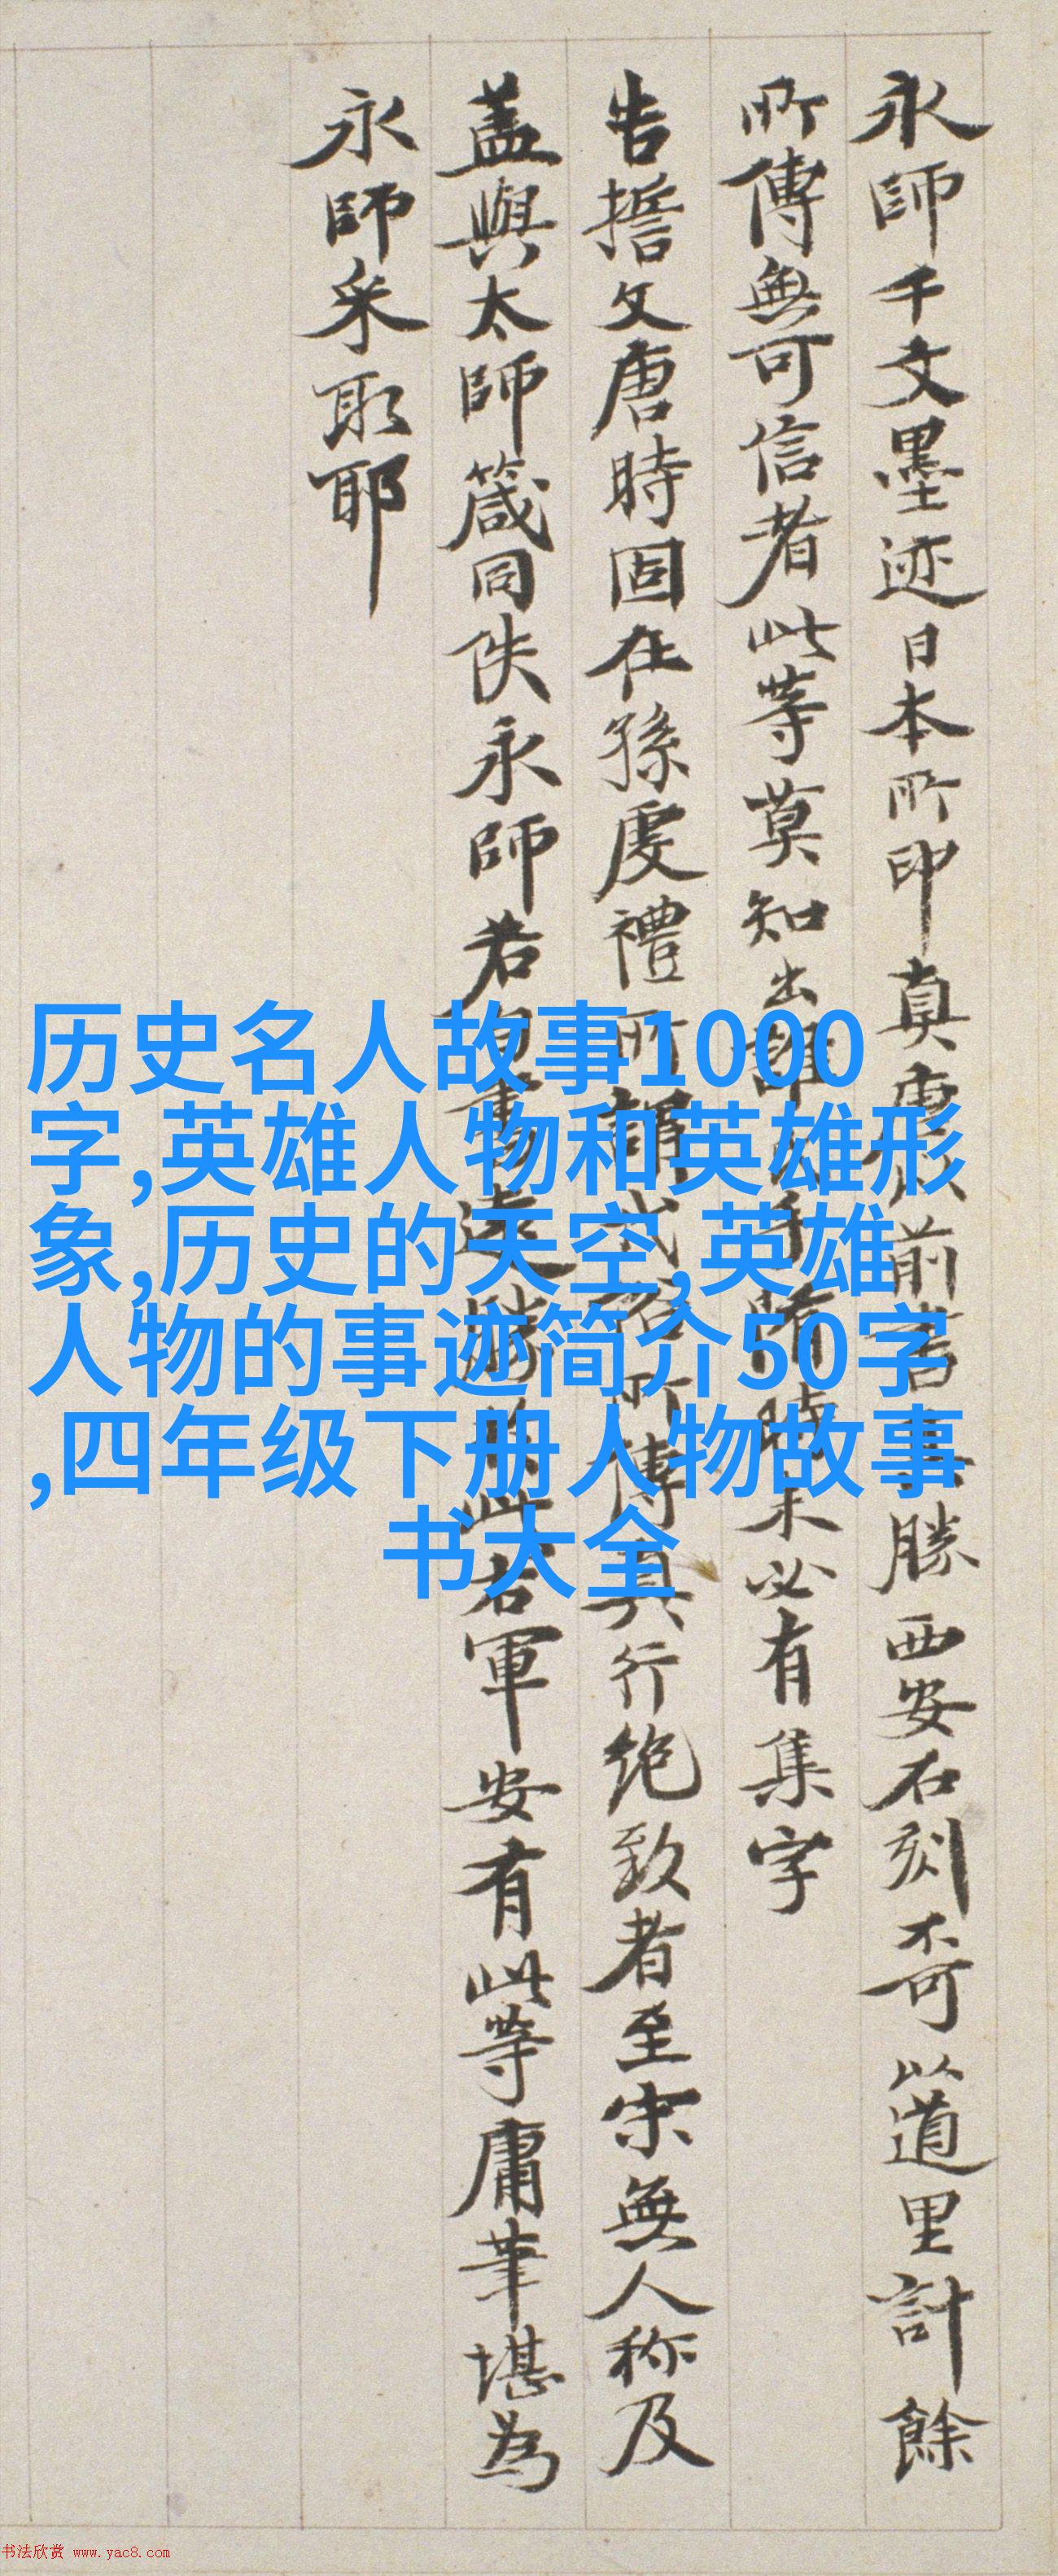 永師千文墨迹日本所印真 前書 勝西安石刻不可以道里計餘
所傳無可信者此等莫知出誰 手 時 未必有集字
告誓文唐時固在孫虔禮所謂代俗所傳真行絶致者至宋無人称及
盖與太師箴同佚永師若 書遠勝 此右軍安有此等庸筆堪為
永師采取耶
历史名人故事1000
字,英雄人物和英雄形
象,历史的天空,英雄
人物的事迹简介50字
,四年级下册人物故事
书大全
书法欣赏 www.yac8.com